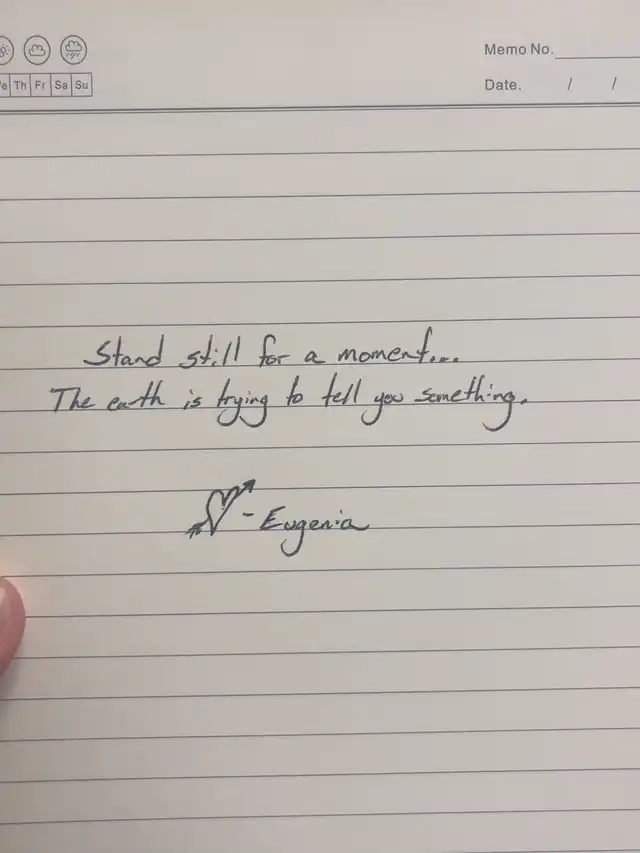 Memo No.
We Th Fr Sa Su
Date. / /
Stand still for a moment...
The earth is trying to tell you something.
- Eugenia